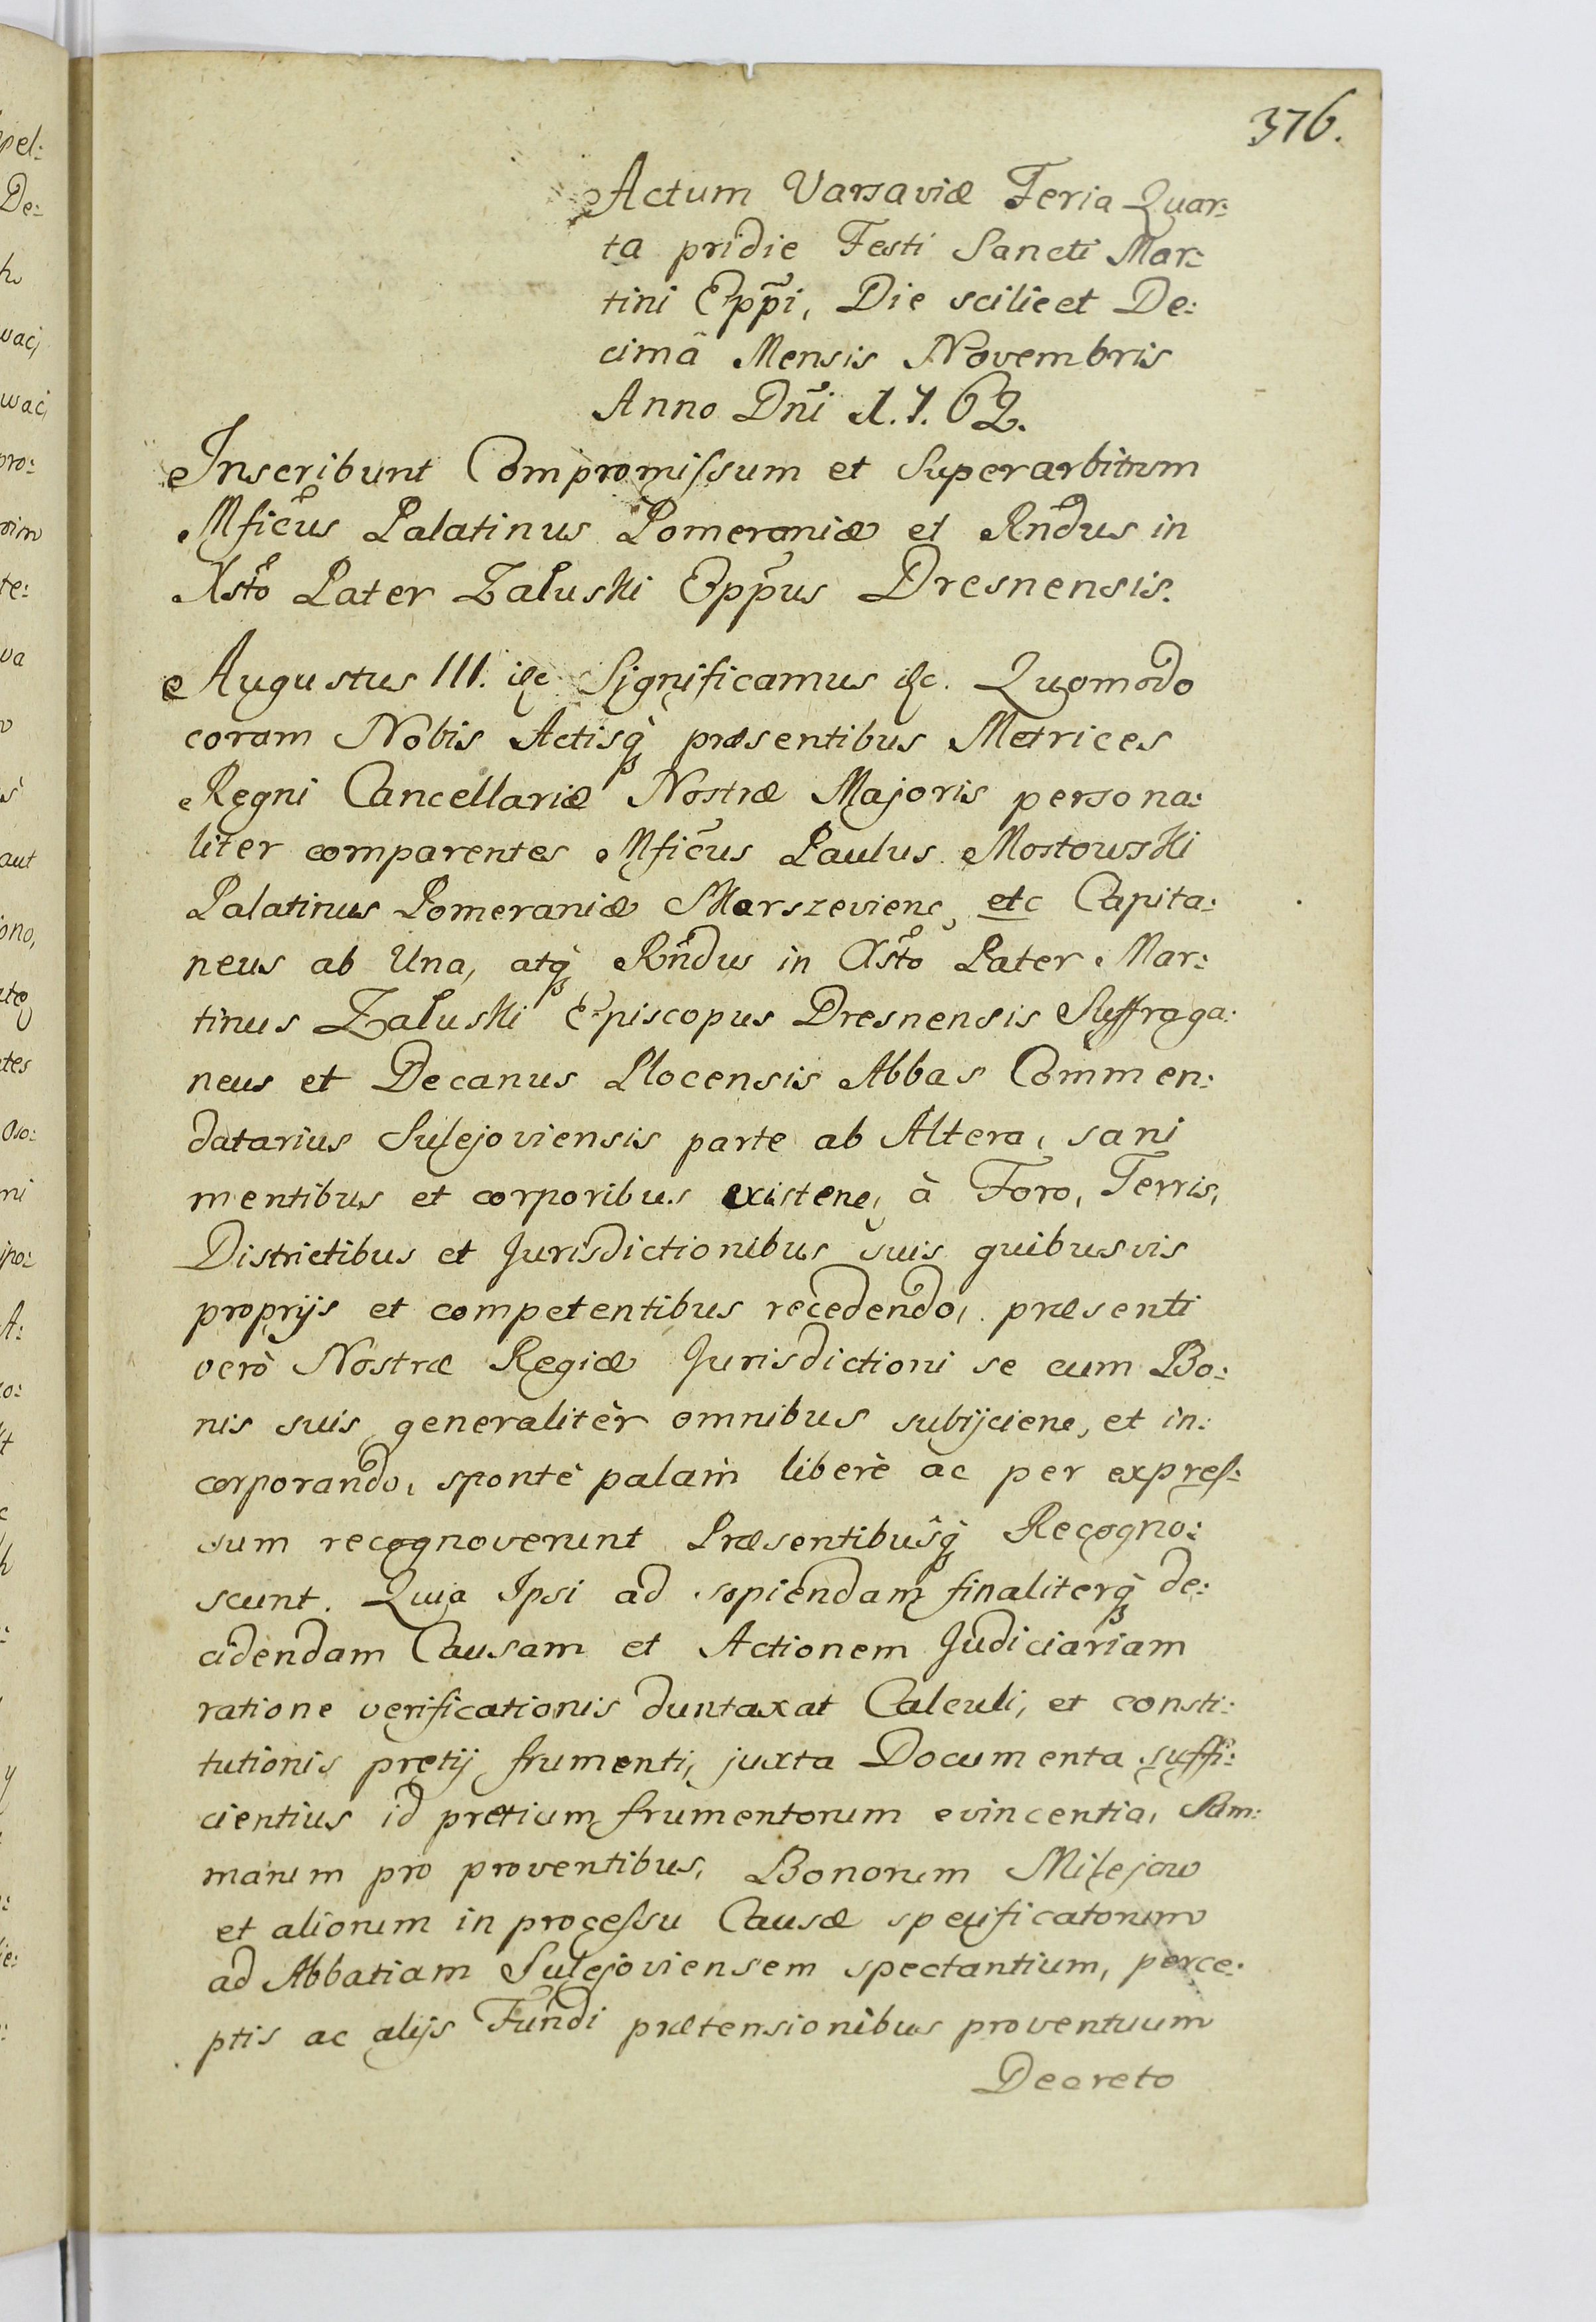 376.
Actum Varsaviæ Feria Quar:
ta pridie Festi Sancti Mar:
tini Epp̃i, Die scilicet De:
cimâ Mensis Novembris
Anno Dñi 1.7.62.
Inscribunt Compromiſsum et Superarbitrum
Mficũs Palatinus Pomeraniæ et Rñdus in
Xsto Pater Zaluski Epp̃us Dresnensis.
Augustus III. &c Significamus &c. Quomodo
coram Nobis Actisq̀ præsentibus Metrices
Regni Cancellariæ Nostræ Majoris persona:
liter comparentes Mficũs Paulus Mostowski
Palatinus Pomeraniæ Skarszeviene, etc Capita:
neus ab Una, atq̀ Rñdus in Xsto Pater Mar:
tinus Zaluski Episcopus Dresnensis Suffraga:
neus et Decanus Plocensis Abbas Commen:
datarius Sulejoviensis parte ab Altera, sani
mentibus et corporibus existene, à Foro, Terris,
Districtibus et Jurisdictionibus suis quibusvis
proprijs et competentibus recedendo, præsenti
verò Nostræ Regiæ Jurisdictioni se cum Bo:
nis suis generalitèr omnibus subijciene, et in:
corporando, spontè palam̀ liberè ac per expreſ:
sum recognoverunt Præsentibusq̀ Recogno:
scunt. Quia Ipsi ad sopiendam finaliterq̀ de:
cidendam Causam et Actionem Judiciariam
ratione verificationis duntaxat Calculi, et consti:
tutionis pretij frumenti, juxta Documenta suffi:
cientius id pretium frumentorum evincentia, Sum:
marum pro proventibus, Bonorum Milejow
et aliorum in proceſsu Causæ specificatorum
ad Abbatiam Sulejoviensem spectantium, perce:
ptis ac alijs Fundi prætensionibus proventuum
Decreto